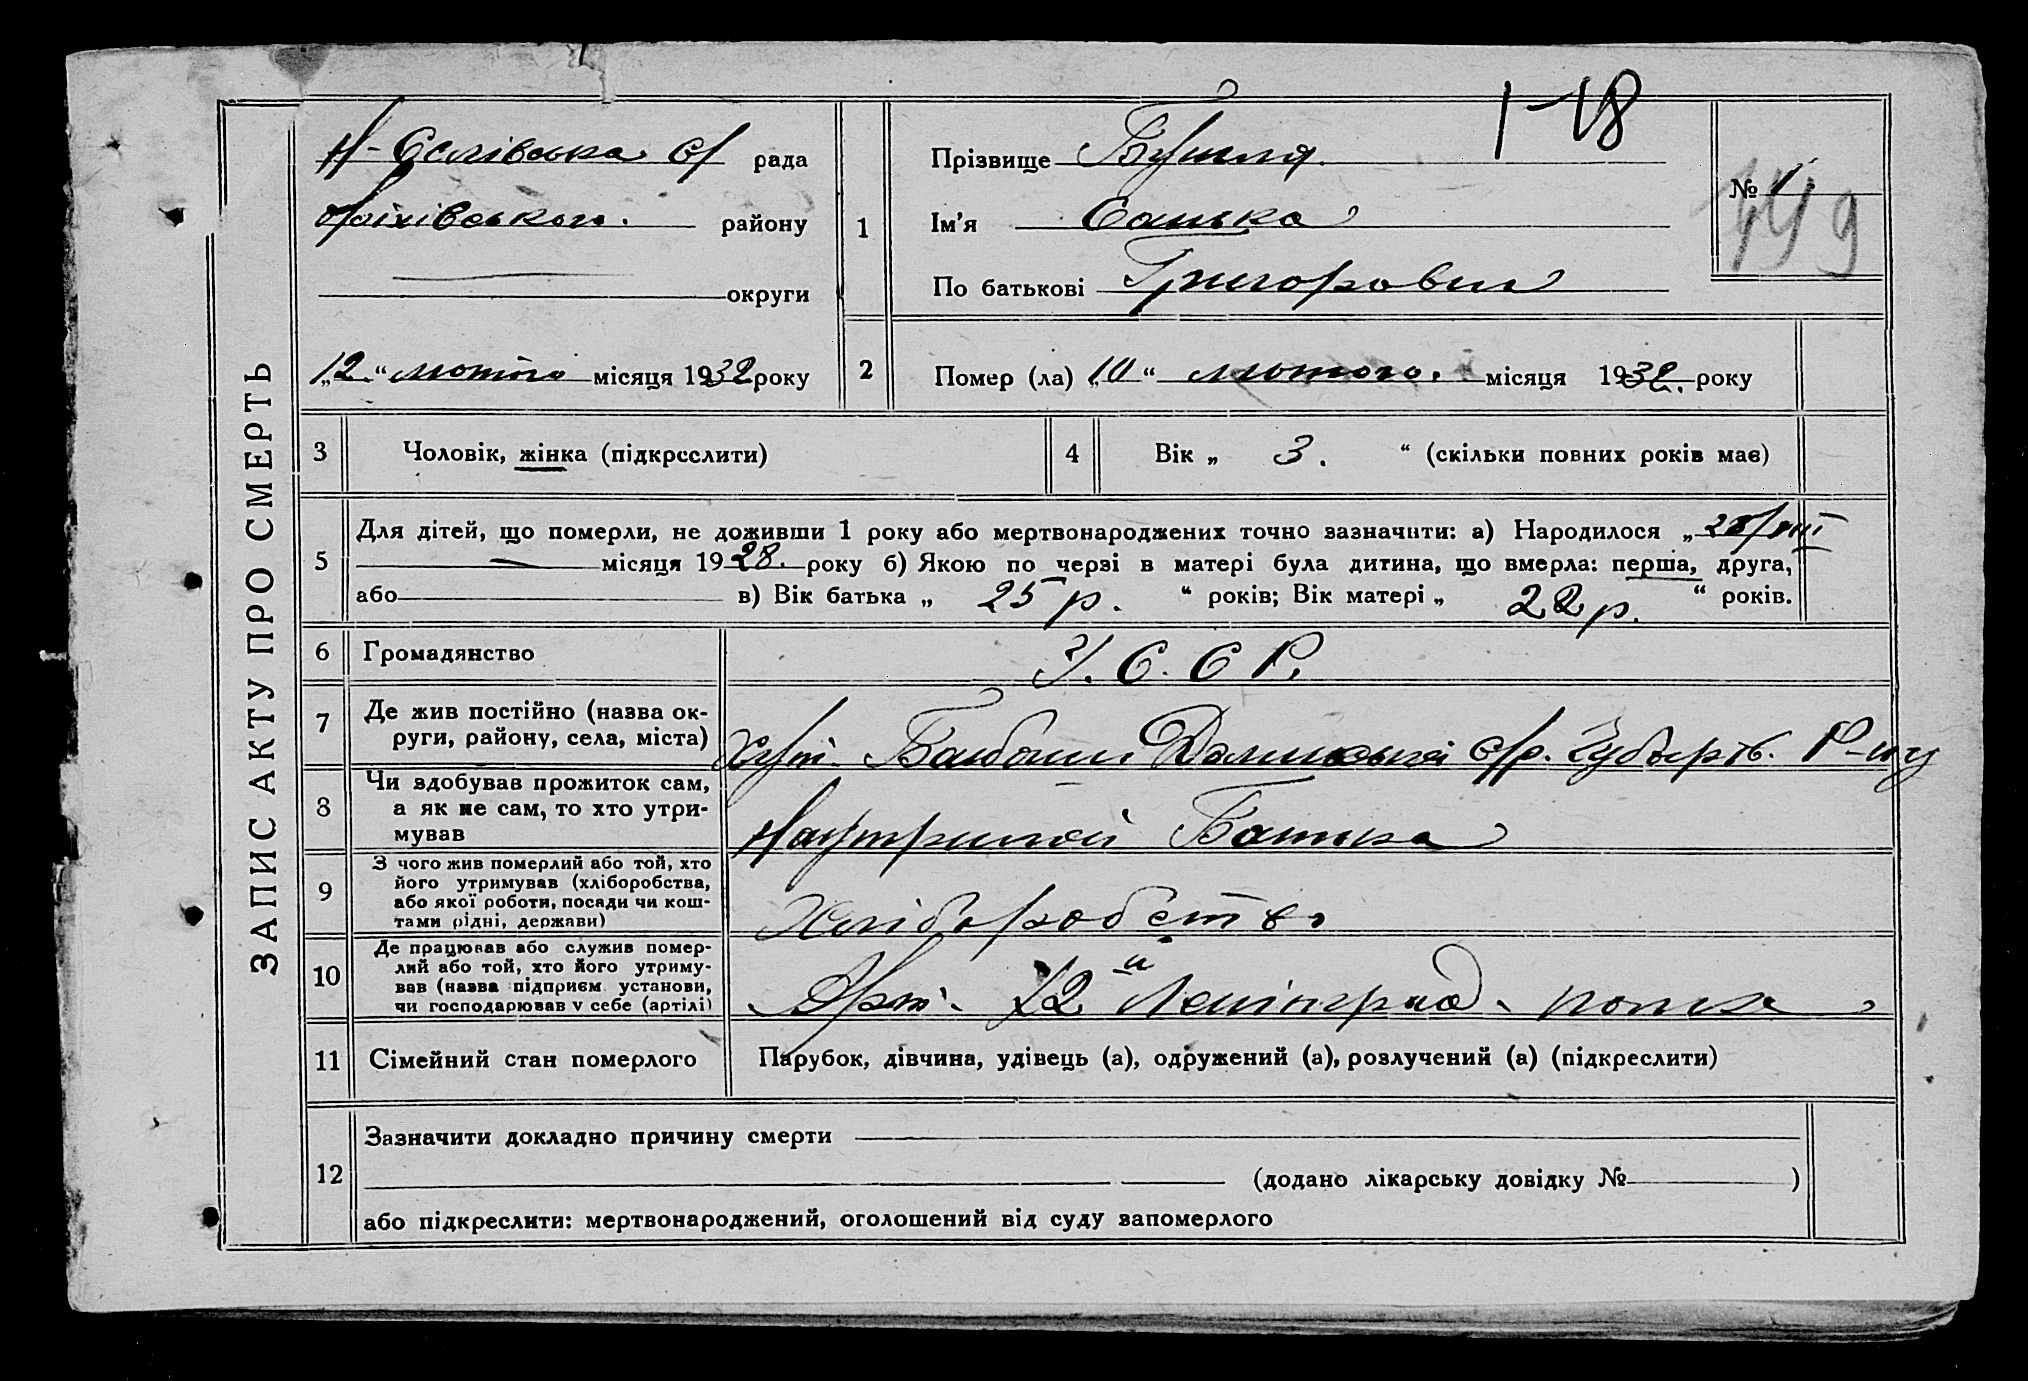 ЗАПИС АКТУ ПРО СМЕРТЬ
1-18
рада
району
округи
„12“ лютого місяця 1932 року
1
Прізвище
Ім'я Санька
По батькові
№ 1
149
2 Помер (ла) „10“ лютого. місяця 1932. року
3 Чоловік, жінка (підкреслити)
4 Вік „ 3. “ (скільки повних років має)
5 Для дітей, що померли, не доживши 1 року або мертвонароджених точно зазначити: а) Народилося „
— місяця 1928. року б) Якою по черзі в матері була дитина, що вмерла: перша, друга,
або в) Вік батька „ 25 р. “ років; Вік матері „ 22 р. “ років.
6 Громадянство У. С. С Р.
7 Де жив постійно (назва ок-
руги, району, села, міста)
Хут. с/р. Р-ну
8 Чи здобував прожиток сам,
а як не сам, то хто утри-
мував
Батька
9 З чого жив померлий або той, хто
його утримував (хліборобства,
або якої роботи, посади чи кош-
тами рідні, держави)
Хліборобство
10 Де працював або служив помер-
лий або той, хто його утриму-
вав (назва підприєм. установи,
чи господарював у себе (артілі)
Арт. 12 и Ленінград.
11 Сімейний стан померлого Парубок, дівчина, удівець (а), одружений (а), розлучений (а) (підкреслити)
12 Зазначити докладно причину смерти
(додано лікарську довідку № )
або підкреслити: мертвонароджений, оголошений від суду запомерлого